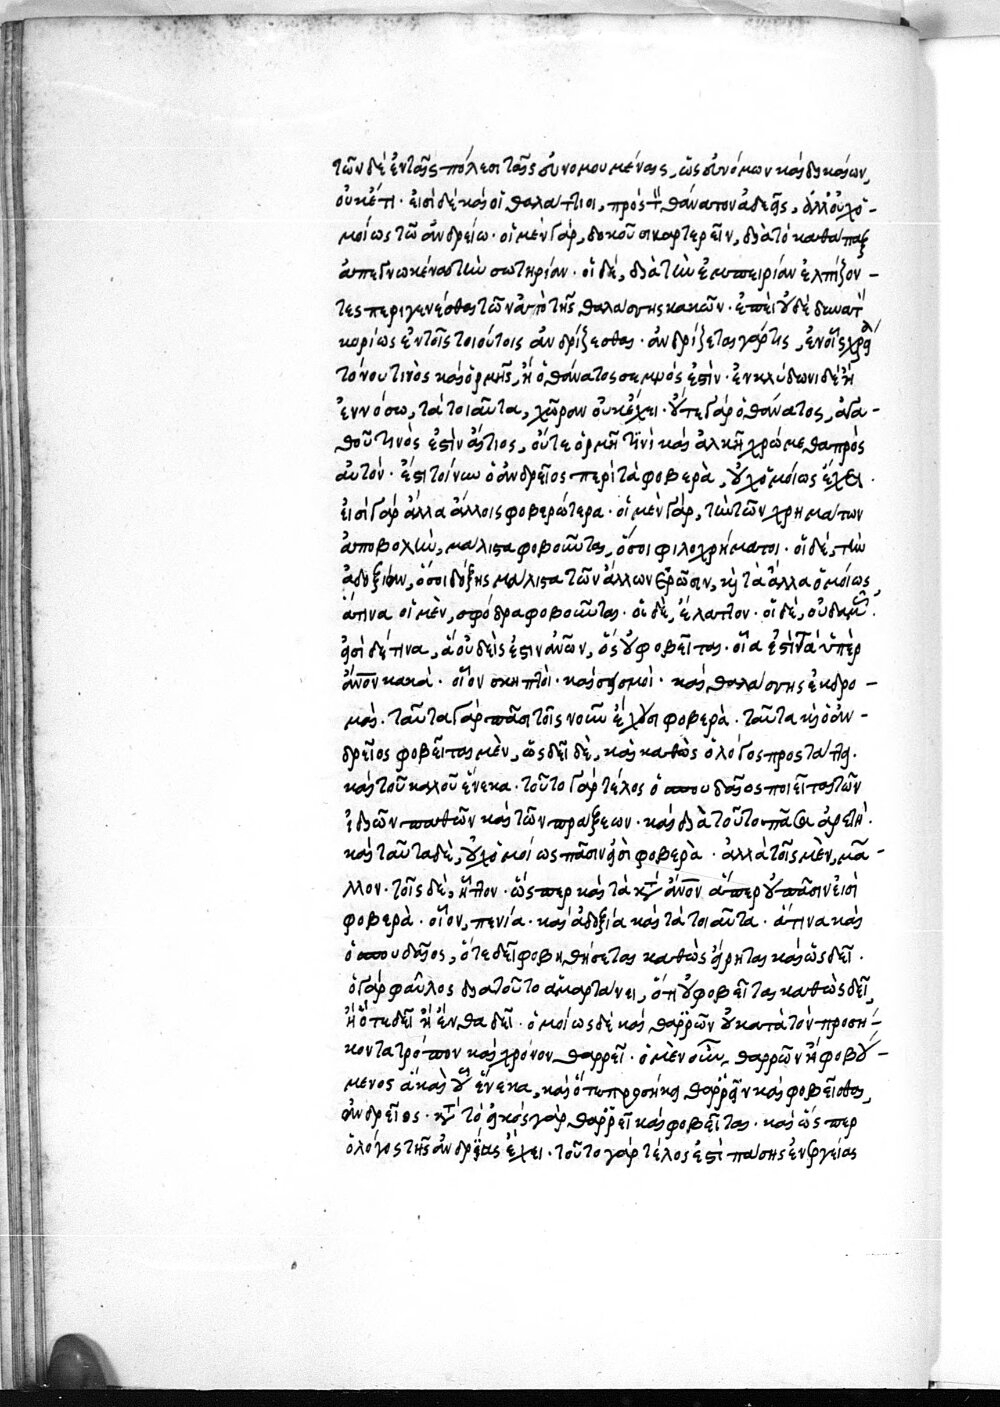 τῶν δὲ ἐν ταῖς πόλεσι ταῖς εὐνομουμέναις, ὡς εὐνόμων καὶ δικαίων,
οὐκέτι · εἰσὶ δὲ καὶ οἱ θαλάττιοι, πρὸς τὸν θάνατον ἀδεεῖς, ἀλλ' οὐχ ὁ-
μοίως τῷ ἀνδρείῳ · οἱ μὲν γὰρ, δοκοῦσι καρτερεῖν, διὰ τὸ καθάπαξ
ἀπεγνωκέναι τὴν σωτηρίαν · οἱ δὲ, διὰ τὴν ἐμπειρίαν ἐλπίζον-
τες περιγενέσθαι τῶν ἀπὸ τῆς θαλάσσης κακῶν · ἐπεὶ οὐδὲ δυνατὸν
κυρίως ἐν τοῖς τοιούτοις ἀνδρίζεσθαι · ἀνδρίζεται γάρ τις, ἐν οἷς χρεία
τόνου τινὸς καὶ ὁρμῆς, ἢ ὁ θάνατος σεμνός ἐστιν · ἐν κλύδωνι δὲ ἢ
ἐν νόσῳ, τὰ τοιαῦτα, χῶραν οὐκ ἔχει · οὔτε γὰρ ὁ θάνατος, ἀγα-
θοῦ τινὸς ἐστὶν αἴτιος, οὔτε ὁρμῇ τινὶ καὶ ἀλκῇ χρώμεθα πρὸς
αὐτόν · ἔτι τοίνυν ὁ ἀνδρεῖος περὶ τὰ φοβερὰ, οὐχ ὁμοίως ἔχει ·
εἰσὶ γὰρ ἄλλα ἄλλοις φοβερώτερα · οἱ μὲν γὰρ, τὴν τῶν χρημάτων
ἀποβολὴν, μάλιστα φοβοῦνται, ὅσοι φιλοχρήματοι · οἱ δὲ, τὴν
ἀδοξίαν, ὅσοι δόξης μάλιστα τῶν ἄλλων ἐρῶσιν, κὴ τὰ ἄλλα ὁμοίως,
ἅτινα οἱ μὲν, σφόδρα φοβοῦνται · οἱ δὲ, ἔλαττον · οἱ δὲ, οὐδαμῶς ·
εἰσὶ δέ τινα, ἃ οὐδείς ἐστιν ἀνῶν, ὃς οὐ φοβεῖται · οἷα ἐστὶ τὰ ὑπὲρ
ἄνον κακὰ · οἷον σκηπτοὶ · καὶ σεισμοὶ · καὶ θαλάσσης ἐκδρο-
μαί · ταῦτα γὰρ πᾶσι τοῖς νοῦν ἔχουσι φοβερὰ · ταῦτα κὴ ὁ ἀν-
δρεῖος φοβεῖται μὲν, ὡς δεῖ δὲ, καὶ καθὼς ὁ λόγος προστάττει ·
καὶ τοῦ καλοῦ ἕνεκα · τοῦτο γὰρ τέλος ὁ σπουδαῖος ποιεῖται τῶν
ἰδίων παθῶν καὶ τῶν πράξεων · καὶ διὰ τοῦτο πᾶσα ἀρετή ·
καὶ ταῦτα δὲ, οὐχ ὁμοίως πᾶσιν εἰσὶ φοβερὰ · ἀλλὰ τοῖς μὲν, μᾶ-
λλον · τοῖς δὲ, ἧττον · ὥσπερ καὶ τὰ κατ' ἄνον ἅπερ οὐ πᾶσιν εἰσὶ
φοβερὰ · οἷον, πενία · καὶ ἀδοξία καὶ τὰ τοιαῦτα · ἅτινα καὶ
ὁ σπουδαῖος, ὅτε δεῖ φοβηθήσεται καθὼς εἴρηται καὶ ὡς δεῖ ·
ὁ γὰρ φαῦλος διὰ τοῦτο ἁμαρτάνει, ὅτι οὐ φοβεῖται καθὼς δεῖ,
ἢ ὅτε δεῖ ἢ ἔνθα δεῖ · ὁμοίως δὲ καὶ θαῤῥῶν οὐ κατὰ τὸν προσή-
κοντα τρόπον καὶ χρόνον θαρρεῖ · ὁ μὲν οὖν θαρρῶν ἢ φοβού-
μενος ἃ καὶ οὗ ἕνεκα, καὶ ὅτε προσήκει θαῤῥεῖν καὶ φοβεῖσθαι,
ἀνδρεῖος · κατὰ τὸ εἰκὸς γὰρ θαῤῥεῖ καὶ φοβεῖται · καὶ ὥσπερ
ὁ λόγος τῆς ἀνδρείας ἔχει · τοῦτο γὰρ τέλος ἐστὶ πάσης ἐνεργείας